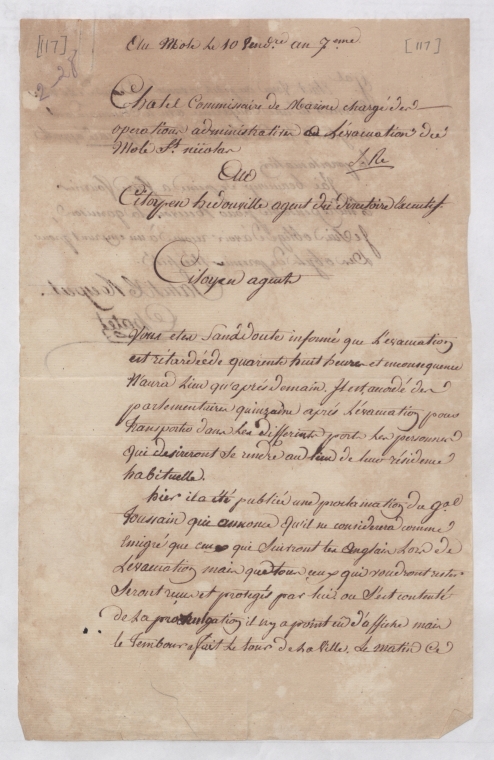 [117]
Au Mole le 10 Vend.re an 7.eme
[117]
2-28
Chatel Commissaire de Marine chargé des
operations administrative de L'évacuation du
Mole St. nicolas
Au
Citoyen hedouville agent du Directoire Executif
Citoyen agent
Vous etes Sans doute informé que L'évacuation
est retardée de quarente huit heures et in consequence
N'aura Lieu qu'après demain. Il est accordé des
parlementaires quinzaine après L'évacuation pour
transporter dans Les differents ports Les personnes
qui desireront Se rendre au lieu de leur résidence
habituelle.
hier il a été publié une proclamation du g.al
Toussain qui annonce qu'il ne considerera comme
Emigré que ceux qui Suivront les anglais Lors de
L'évacuation mais que tous ceux qui voudront rester
Seront reçus et protegés par lui on S'est contenté
de La promulgation il n'y a point eu d'affiche mais
le Tembour a fait Le tour de La Ville. Le matin Ce